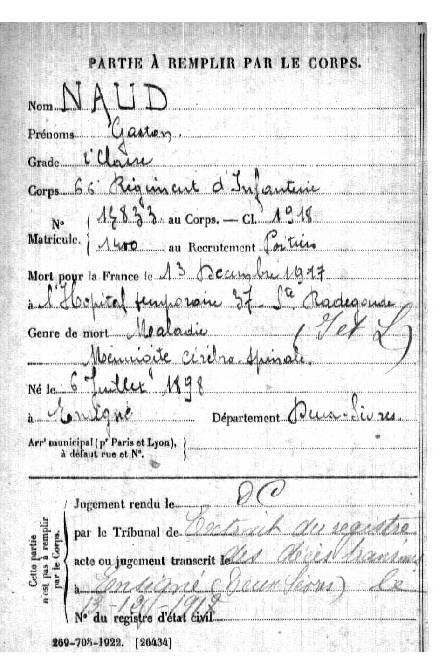 PARTIE À REMPLIR PAR LE CORPS.
Nom NAUD
Prénoms Gaston
Grade 2e Classe
Corps 66e Régiment d'Infanterie
N° Matricule. 13833 au Corps. — Cl. 1918
1400 au Recrutement Poitiers
Mort pour la France le 13 Décembre 1917
à l'Hôpital temporaire 37 - Ste Radegonde
Genre de mort Maladie (I et L)
Méningite cérébro-spinale.
Né le 6 Juillet 1898
à Ensigné Département Deux-Sèvres.
Arrt municipal (pr Paris et Lyon),
à défaut rue et N°.
Cette partie n'est pas à remplir par le Corps.
Jugement rendu le DC
par le Tribunal de Extrait du registre
acte ou jugement transcrit le des décès transmis
à Ensigné (Deux Sèvres) le
N° du registre d'état civil
269-708-1922. [26434]